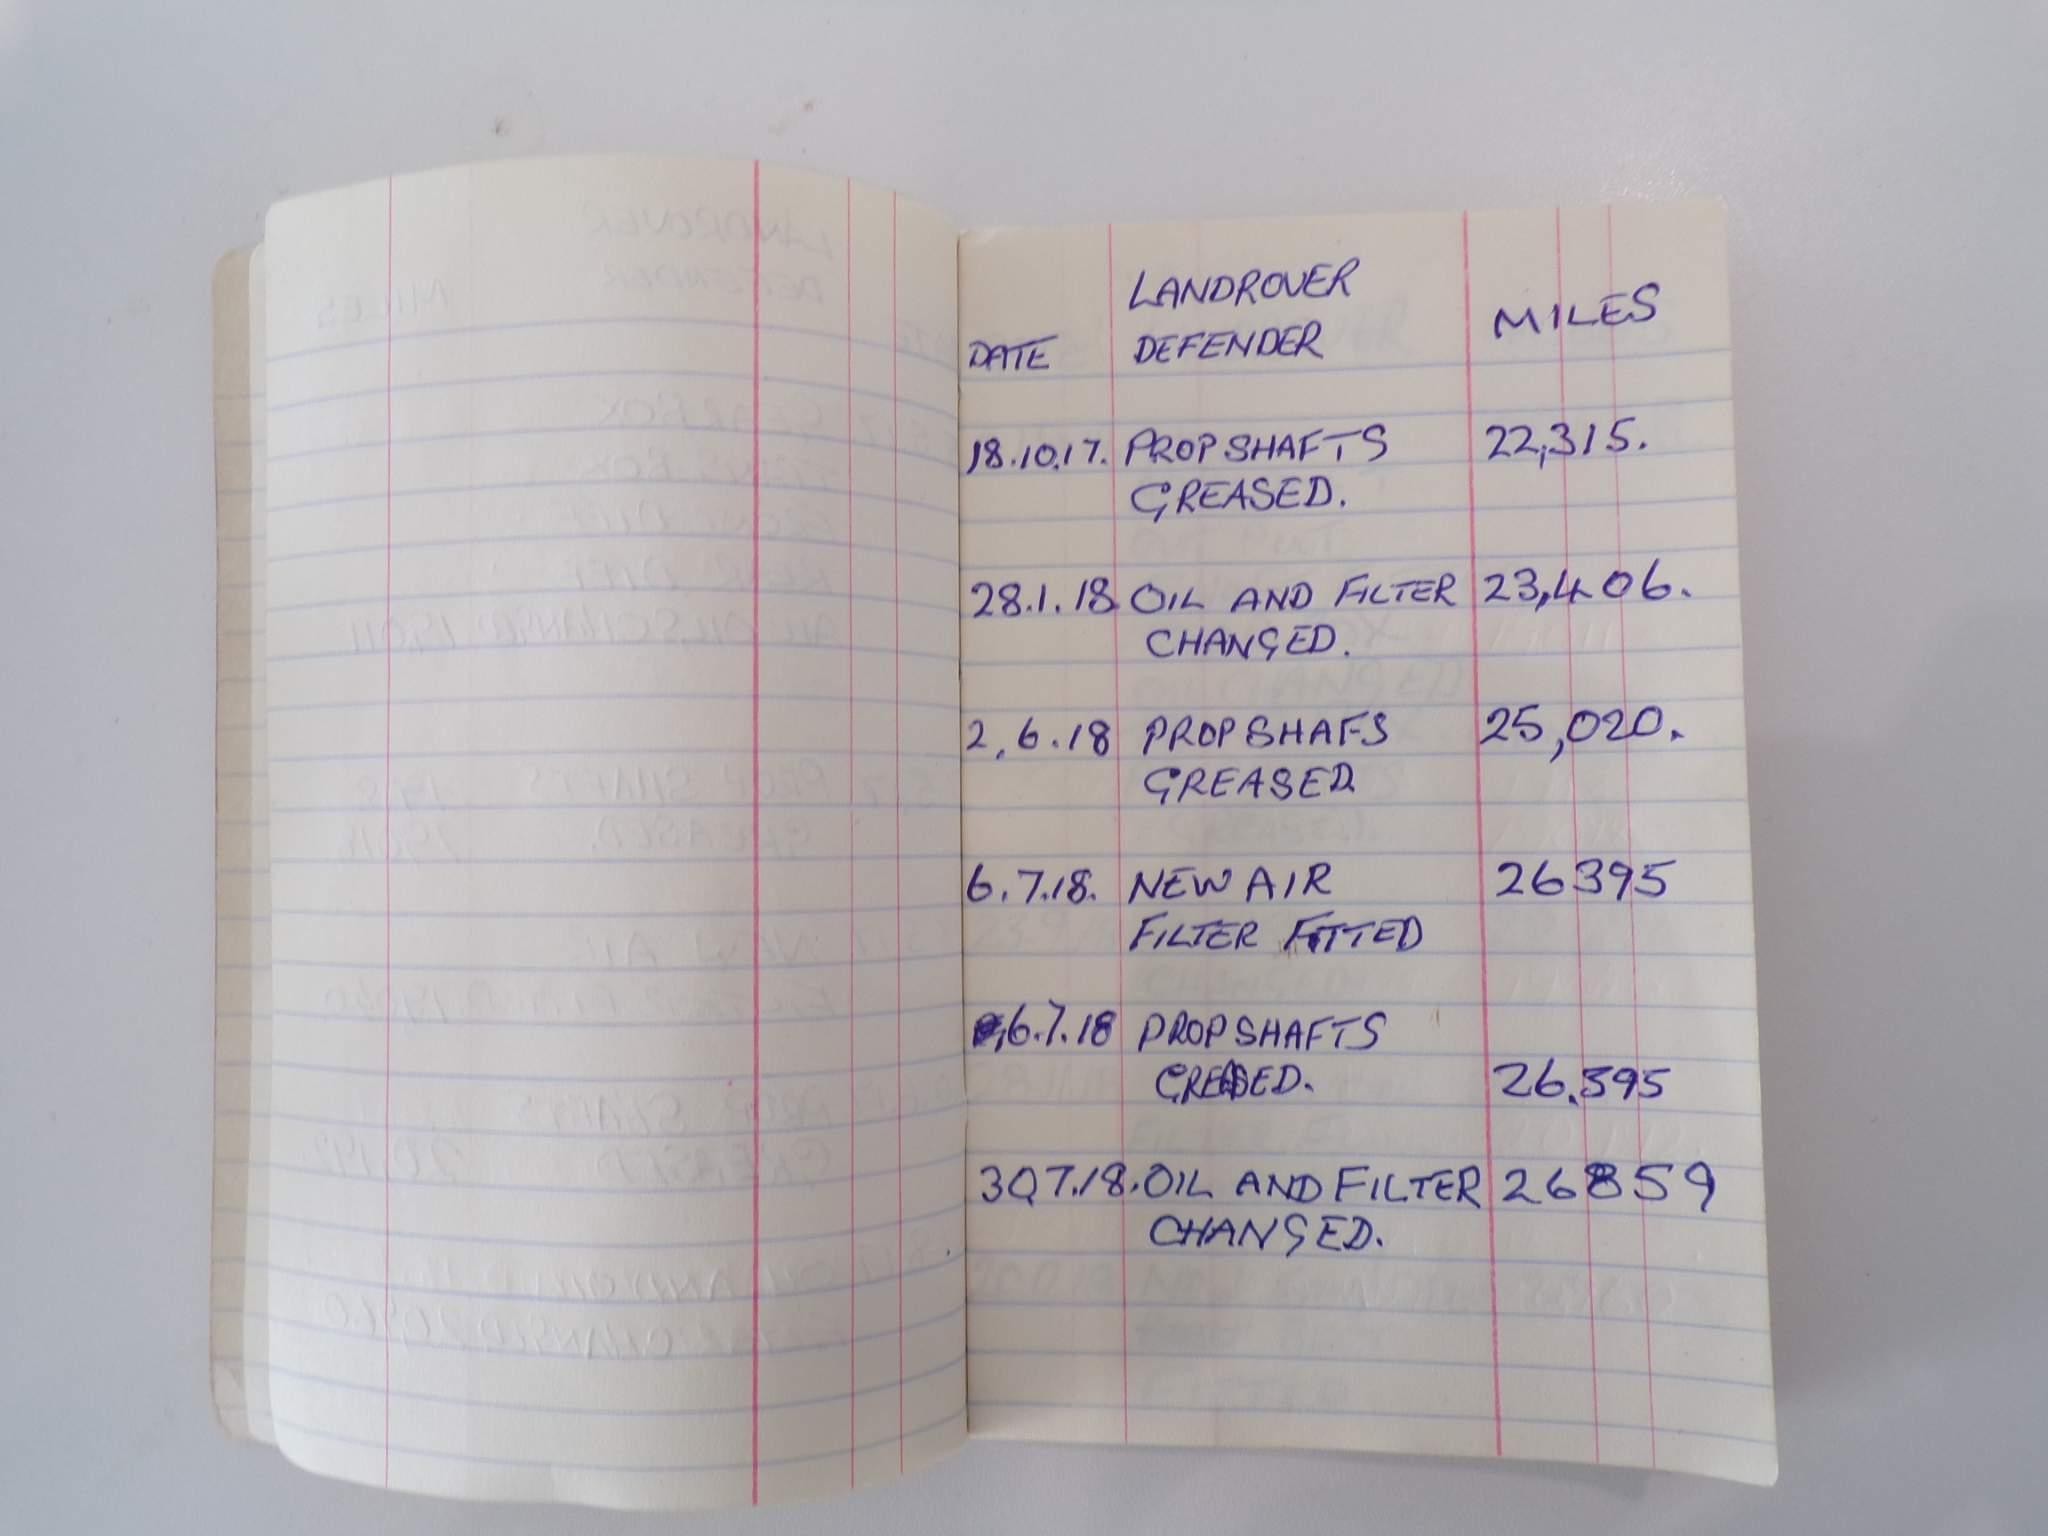 LANDROVER
DATE DEFENDER MILES
18.10.17. PROPSHAFTS 22,315.
GREASED.
28.1.18 OIL AND FILTER 23,406.
CHANGED.
2,6.18 PROPSHAFS 25,020.
GREASED
6.7.18. NEW AIR 26395
FILTER FITTED
6.7.18 PROPSHAFTS
GREASED. 26.395
30,7.18. OIL AND FILTER 26859
CHANGED.